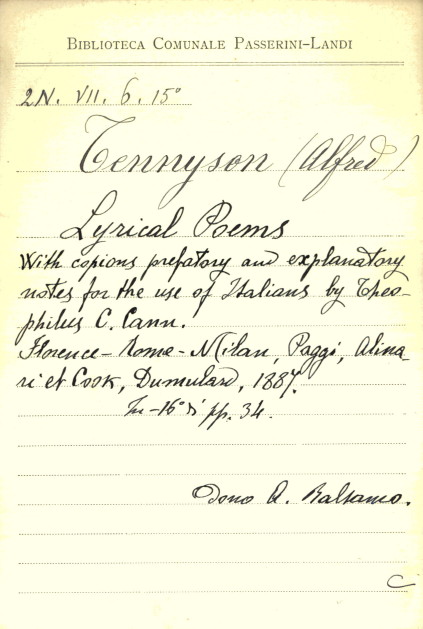 BIBLIOTECA COMUNALE PASSERINI-LANDI
2N. VII. 6. 15°
Tennyson (Alfred)
Lyrical Poems
With copious prefatory and explanatory
notes for the use of Italians by Theo-
philus C. Cann.
Florence - Rome - Milan, Paggi, Alina-
ri et Cook, Dumulard, 1887.
In-16° di pp. 34.
Dono A. Balsamo.
C